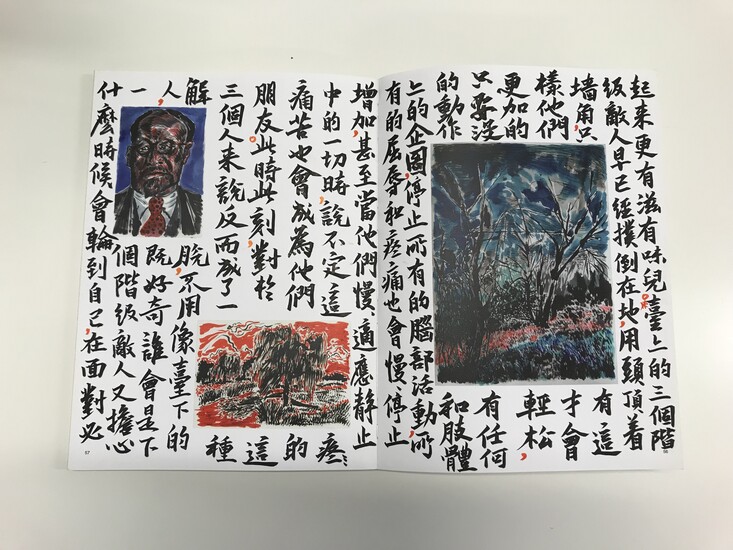 起來更有滋有味兒。臺上的三個階
级敵人早已經撲倒在地,用頭頂着
墙角,只有這
樣他們才會
更加的輕松,
只要沒有任何
的動作和肢體
上的企圖,停止所有的腦部活動,所
有的屈辱和疼痛也會慢々停止
增加,甚至當他們慢々適應静止
中的一切時,說不定這疼々
痛苦也會成為他們的
朋友。此時此刻,對於這
三個人来說反而成了一種
解脫,不用像臺下的
人,既好奇誰會是下
一個階级敵人又擔心
什麼時候會輪到自己,在面對必
57